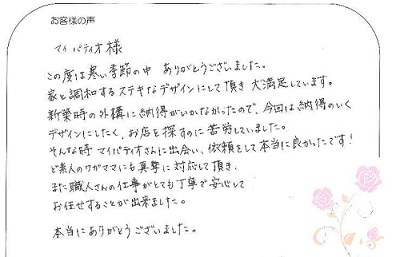 お客様の声
マイパティオ様
この度は寒い季節の中 ありがとうございました。
家と調和するステキなデザインにして頂き 大満足しています。
新築時の外構に納得がいかなかったので、今回は納得のいく
デザインにしたく、お店を探すのに苦労していました。
そんな時 マイパティオさんに出会い、依頼をして本当に良かったです!
ど素人のワガママにも真摯に対応して頂き、
また職人さんの仕事がとても丁寧で安心して
お任せすることが出来ました。
本当にありがとうございました。